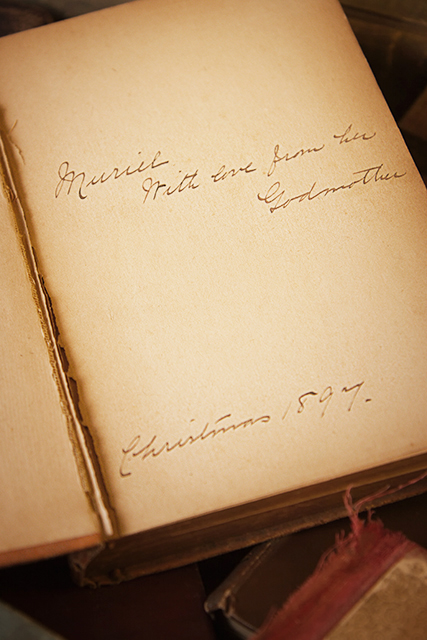 Muriel
With love from her
Godmother
Christmas 1897.